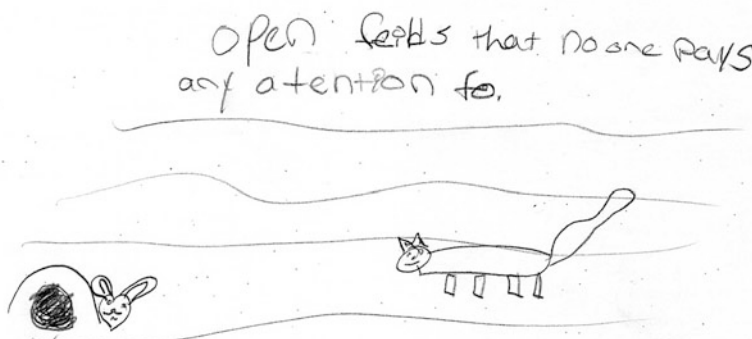 open feilds that no one pays
any atention to.